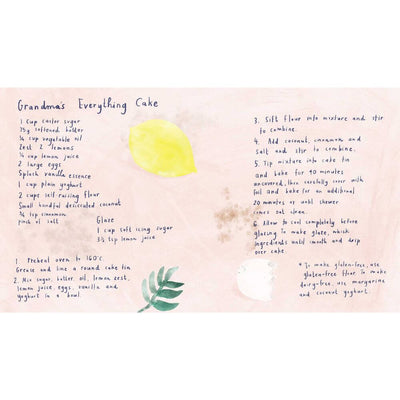 Grandma's Everything Cake
1 cup castor sugar
75g softened butter
¼ cup vegetable oil
Zest 2 lemons
¼ cup lemon juice
2 large eggs
Splash vanilla essence
1 cup plain yoghurt
2 cups self raising flour
Small handful desiccated coconut
¾ tsp cinnamon
pinch of salt
Glaze
1 cup soft icing sugar
3½ tsp lemon juice
1. Preheat oven to 160°c.
Grease and line a round cake tin
2. Mix sugar, butter, oil, lemon zest,
lemon juice, eggs, vanilla and
yoghurt in a bowl.
3. Sift flour into mixture and stir
to combine.
4. Add coconut, cinnamon and
salt and stir to combine.
5. Tip mixture into cake tin
and bake for 40 minutes
uncovered, then carefully cover with
foil and bake for an additional
20 minutes or until skewer
comes out clean.
6. Allow to cool completely before
glazing. To make glaze, whisk
ingredients until smooth and drip
over cake.
* To make gluten-free, use
gluten-free flour. To make
dairy-free, use margarine
and coconut yoghurt.